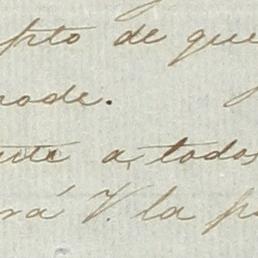 pto de que
ode.
te a todos
rá V. la p